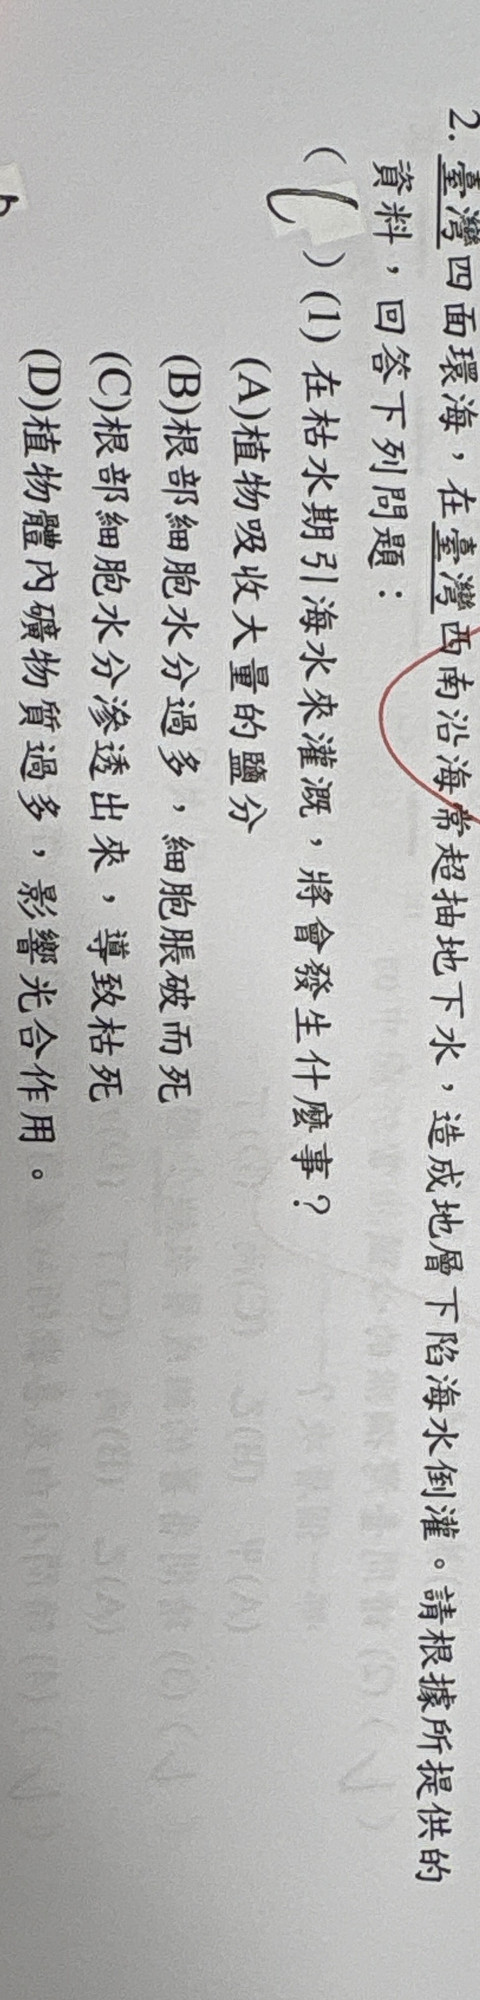 2. 臺灣四面環海，在臺灣西南沿海常超抽地下水，造成地層下陷海水倒灌。請根據所提供的
資料，回答下列問題：
( ) (1) 在枯水期引海水來灌溉，將會發生什麼事？
(A)植物吸收大量的鹽分
(B)根部細胞水分過多，細胞脹破而死
(C)根部細胞水分滲透出來，導致枯死
(D)植物體內礦物質過多，影響光合作用。